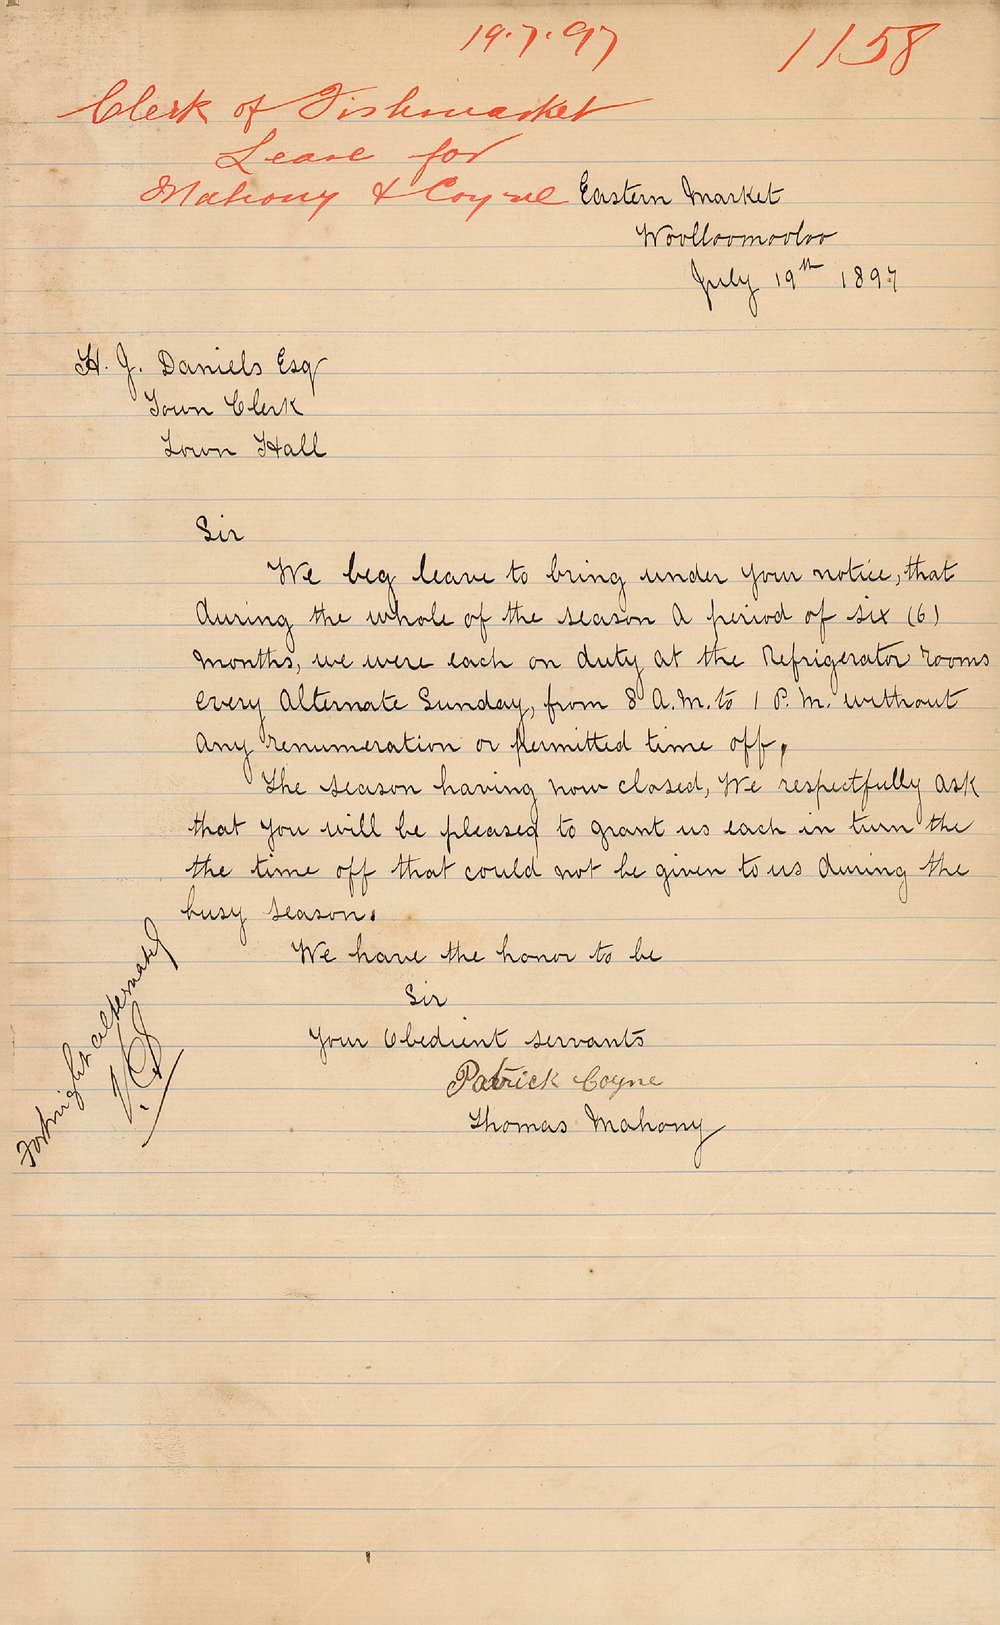 19.7.97
1158
Clerk of Fishmarket
Leave for
Mahony & Coyne
Eastern Market
Woolloomooloo
July 19th 1897
H. J. Daniels Esq
Town Clerk
Town Hall
Sir
We beg leave to bring under your notice, that
during the whole of the season a period of six (6)
months, we were each on duty at the Refrigerator rooms
every alternate Sunday, from 8 A.M. to 1 P.M. without
any renumeration or permitted time off,
The season having now closed, We respectfully ask
that you will be pleased to grant us each in turn the
the time off that could not be given to us during the
busy season.
We have the honor to be
Sir
Your Obedient servants
Patrick Coyne
Thomas Mahony
Fortnight alternately